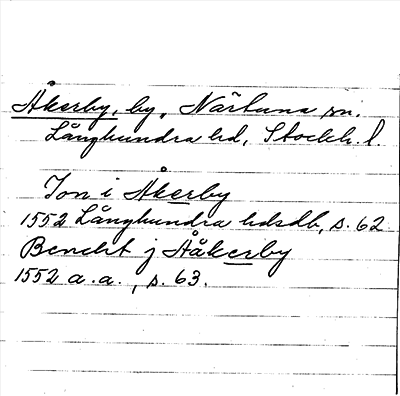 Åkerby, by, Närtuna sn.
Långhundra hd, Stockh. l.
Jon i Åkerby
1552 Långhundra hdsdb, s. 62
Bencht j Aåkerby
1552 a. a., s. 63.